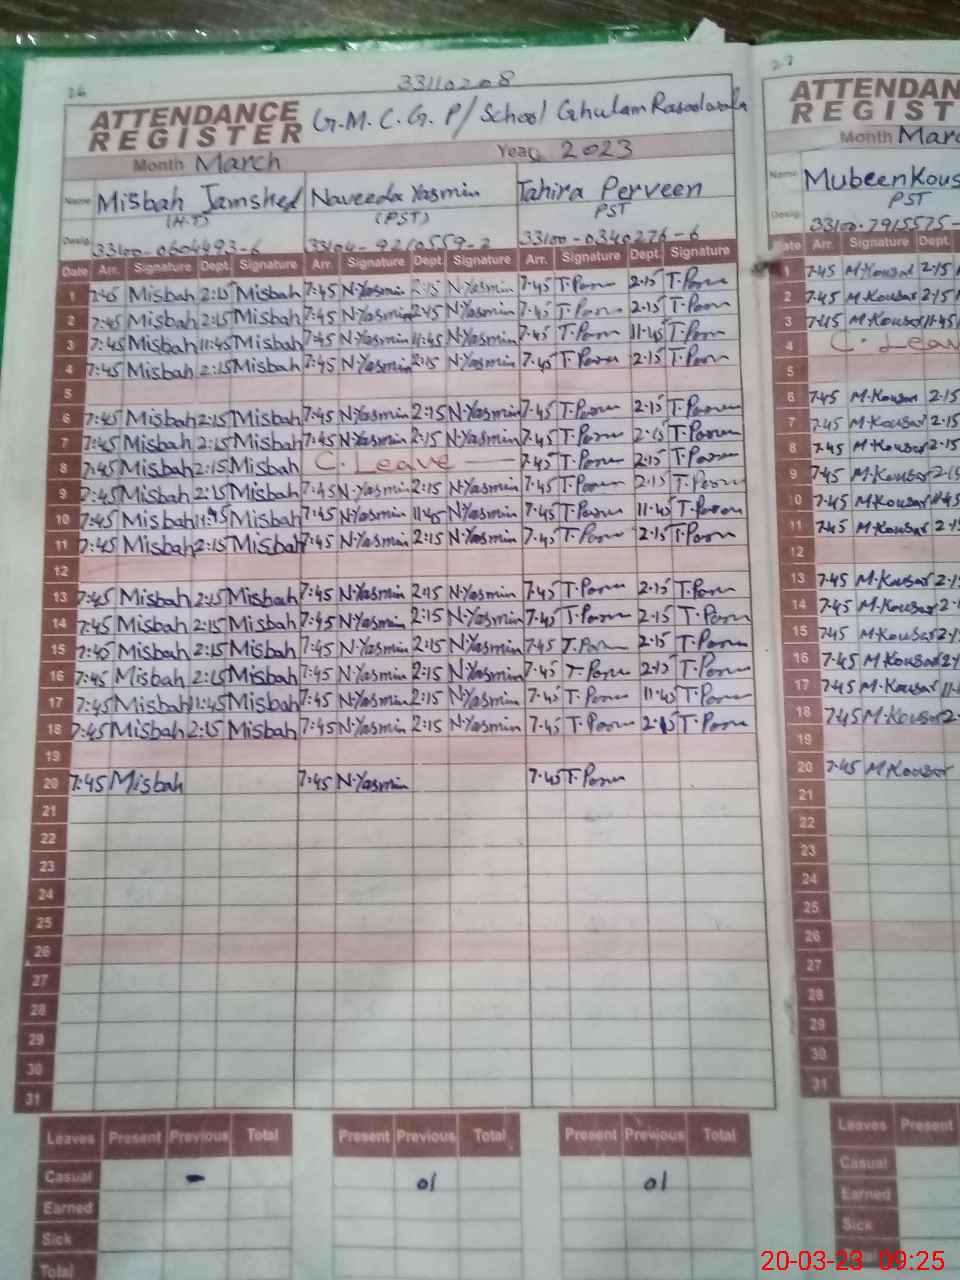 26
33110208
ATTENDANCE
REGISTER
G.M.C.G.P/School Ghulam Rasoolwala
Month March Year 2023
Name Misbah Jamshed Naveeda Yasmin Tahira Perveen
(H.T) (PST) PST
Desig. 33100-0604493-6 33104-9210559-2 33100-0340276-6
Date Arr. Signature Dept. Signature Arr. Signature Dept. Signature Arr. Signature Dept. Signature
1 7:45 Misbah 2:15 Misbah 7:45 N.Yasmin 2:15 N.Yasmin 7:45 2:15
2 7:45 Misbah 2:15 Misbah 7:45 N.Yasmin 2:15 N.Yasmin 7:45 2:15
3 7:45 Misbah 11:45 Misbah 7:45 N.Yasmin 11:45 N.Yasmin 7:45 11:45
4 7:45 Misbah 2:15 Misbah 7:45 N.Yasmin 2:15 N.Yasmin 7:45 2:15
5
6 7:45 Misbah 2:15 Misbah 7:45 N.Yasmin 2:15 N.Yasmin 7:45 2:15
7 7:45 Misbah 2:15 Misbah 7:45 N.Yasmin 2:15 N.Yasmin 7:45 2:15
8 7:45 Misbah 2:15 Misbah C. Leave 7:45 2:15
9 7:45 Misbah 2:15 Misbah 7:45 N.Yasmin 2:15 N.Yasmin 7:45 2:15
10 7:45 Misbah 11:45 Misbah 7:45 N.Yasmin 11:45 N.Yasmin 7:45 11:45
11 7:45 Misbah 2:15 Misbah 7:45 N.Yasmin 2:15 N.Yasmin 7:45 2:15
12
13 7:45 Misbah 2:15 Misbah 7:45 N.Yasmin 2:15 N.Yasmin 7:45 2:15
14 7:45 Misbah 2:15 Misbah 7:45 N.Yasmin 2:15 N.Yasmin 7:45 2:15
15 7:45 Misbah 2:15 Misbah 7:45 N.Yasmin 2:15 N.Yasmin 7:45 2:15
16 7:45 Misbah 2:15 Misbah 7:45 N.Yasmin 2:15 N.Yasmin 7:45 2:15
17 7:45 Misbah 11:45 Misbah 7:45 N.Yasmin 2:15 N.Yasmin 7:45 11:45
18 7:45 Misbah 2:15 Misbah 7:45 N.Yasmin 2:15 N.Yasmin 7:45 2:15
19
20 7:45 Misbah 7:45 N.Yasmin 7:45
21
22
23
24
25
26
27
28
29
30
31
Leaves Present Previous Total Present Previous Total Present Previous Total
Casual - 01 01
Earned
Sick
Total
27
ATTENDAN
REGIST
Month Marc
Name Mubeen Kous
PST
Desig. 33100-7915575-
Date Arr. Signature Dept.
1 7:45 M.Kousar 2:15
2 7:45 M.Kousar 2:15
3 7:45 M.Kousar 11:45
4 C. Leav
5
6 7:45 M.Kousar 2:15
7 7:45 M.Kousar 2:15
8 7:45 M.Kousar 2:15
9 7:45 M.Kousar 2:15
10 7:45 M.Kousar 11:45
11 7:45 M.Kousar 2:1
12
13 7:45 M.Kousar 2:1
14 7:45 M.Kousar 2
15 7:45 M.Kousar 2:1
16 7:45 M.Kousar 2:1
17 7:45 M.Kousar 11
18 7:45 M.Kousar 2
19
20 7:45 M.Kousar
21
22
23
24
25
26
27
28
29
30
31
Leaves Present
Casual
Earned
Sick
20-03-23 09:25